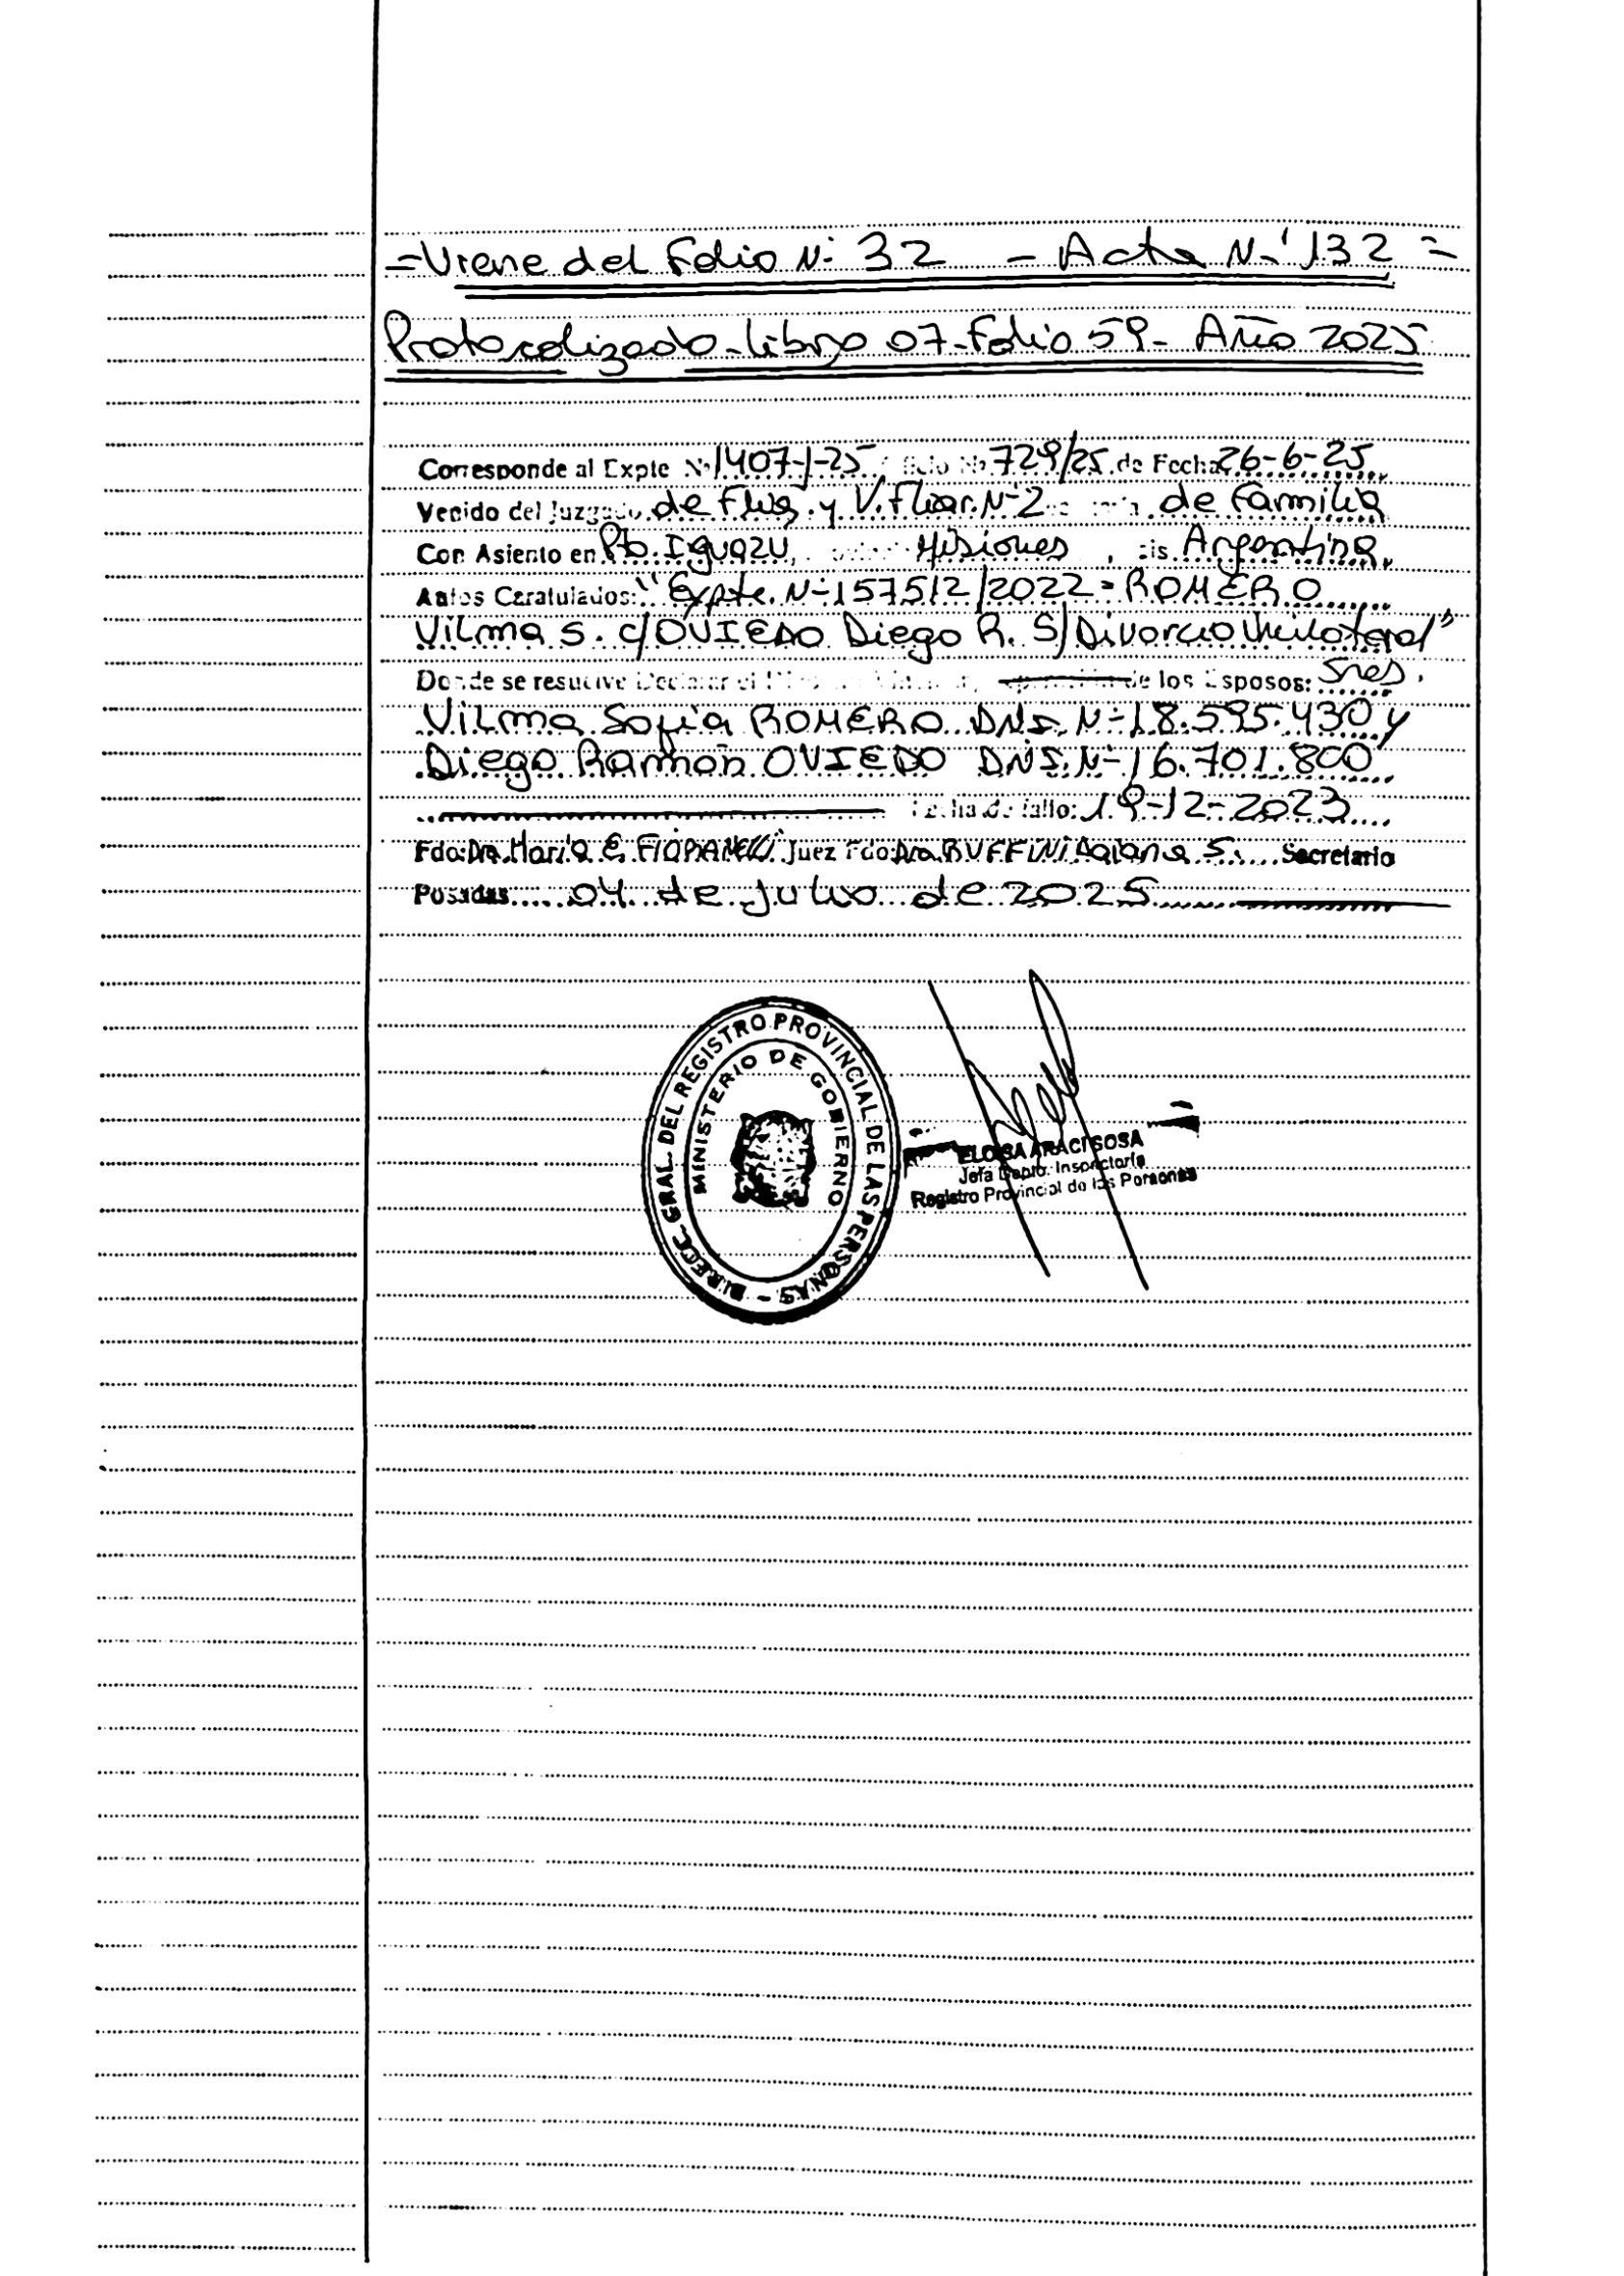 =Viene del Folio N- 32 - Acta N-132=
Protocolizado-Libro 07-Folio 59- Año 2025
Corresponde al Expte Nº 1407-J-25 729/25 de Fecha 26-6-25
Venido del Juzgado de Flia. y V. Fliar. N-2 de Familia
Con Asiento en Pto. Iguazu, Misiones, Argentina.
Autos Caratulados: "Expte. N-157512/2022=ROMERO
Vilma S. c/OVIEDO Diego R. S/Divorcio Unilateral"
Donde se resuelve Declarar el de los Esposos: Sres.
Vilma Sofía ROMERO DNI. N-18.595.430 y
Diego Ramón OVIEDO DNI. N-16.701.800
Fecha de fallo: 19-12-2023
Fdo: Dra. María E. Juez Fdo: Dra. RUFFINI Daiana S. Secretario
Posadas 04 de Julio de 2025
DIRECC. GRAL. DEL REGISTRO PROVINCIAL DE LAS PERSONAS -
MINISTERIO DE GOBIERNO
ELOISA ARACI SOSA
Jefa Depto. Inspectoría
Registro Provincial de las Personas